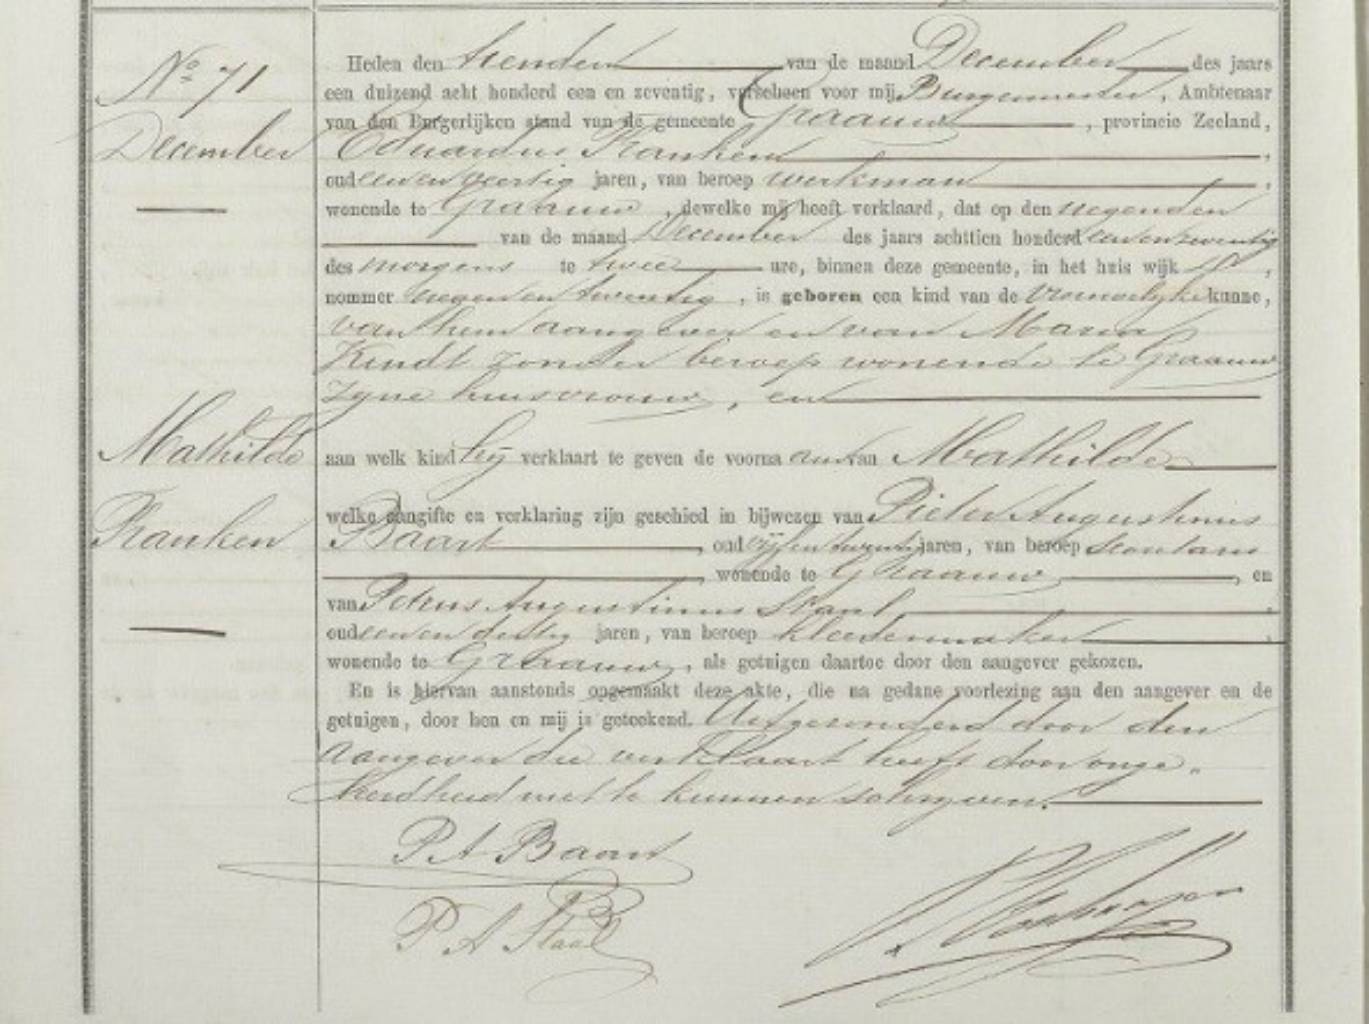 No 71
December
Mathilde
Franken
Heden den tienden van de maand December des jaars
een duizend acht honderd een en zeventig, verscheen voor mij Burgemeester, Ambtenaar
van den Burgerlijken stand van de gemeente Graauw, provincie Zeeland,
Eduardus Franken,
oud een en veertig jaren, van beroep werkman,
wonende te Graauw, dewelke mij heeft verklaard, dat op den negenden
van de maand December des jaars achttien honderd een en zeventig
des morgens te twee ure, binnen deze gemeente, in het huis wijk
nommer negen en twintig, is geboren een kind van de Vrouwelijke kunne,
van hem aangever en van Maria
Kindt zonder beroep wonende te Graauw
zijne huisvrouw, en
aan welk kind hij verklaart te geven de voorna am van Mathilde
welke aangifte en verklaring zijn geschied in bijwezen van Pieter Augustinus
Baart, oud vijf en twintig jaren, van beroep
wonende te Graauw, en
van Petrus Augustinus Staal,
oud een en dertig jaren, van beroep kleedermaker,
wonende te Graauw, als getuigen daartoe door den aangever gekozen.
En is hiervan aanstonds opgemaakt deze akte, die na gedane voorlezing aan den aangever en de
getuigen, door hen en mij is geteekend. Uitgezonderd door den
aangever die verklaart heeft door onge-
leerdheid niet te kunnen schrijven.
P A Baart
P A Staal